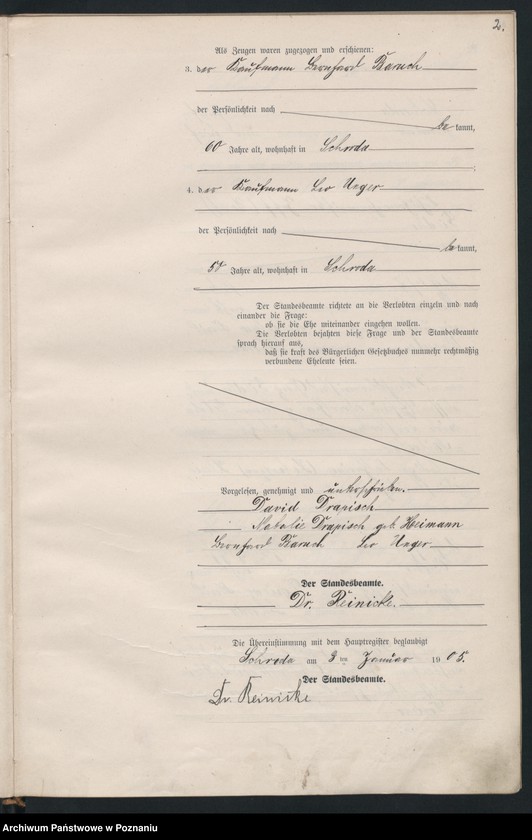 2.
Als Zeugen waren zugezogen und erschienen:
3. der Kaufmann Bernhard Baruch
der Persönlichkeit nach
be kannt,
60 Jahre alt, wohnhaft in Schroda
4. der Kaufmann Leo Unger
der Persönlichkeit nach
be kannt,
50 Jahre alt, wohnhaft in Schroda
Der Standesbeamte richtete an die Verlobten einzeln und nach
einander die Frage:
ob sie die Ehe miteinander eingehen wollen.
Die Verlobten bejahten diese Frage und der Standesbeamte
sprach hierauf aus,
daß sie kraft des Bürgerlichen Gesetzbuches nunmehr rechtmäßig
verbundene Eheleute seien.
Vorgelesen, genehmigt und unterschrieben.
David Drapisch
Natalie Drapisch geb. Heimann
Bernhard Baruch Leo Unger
Der Standesbeamte.
Dr. Reinicke.
Die Übereinstimmung mit dem Hauptregister beglaubigt
Schroda am 3 ten Januar 1905.
Der Standesbeamte.
Dr. Reinicke
Archiwum Państwowe w Poznaniu